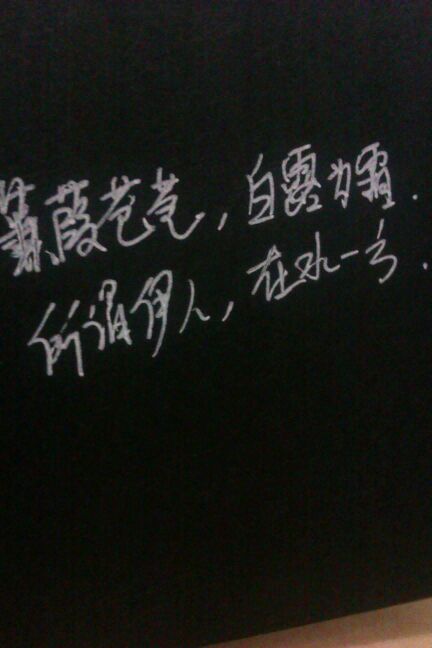 蒹葭苍苍，白露为霜．
所谓伊人，在水一方．